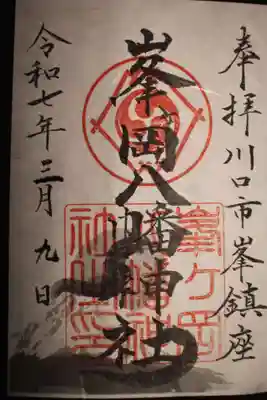 奉拝川口市峯鎮座
峯岡八幡神社
峯ヶ岡
八幡神
社之印
令和七年三月九日